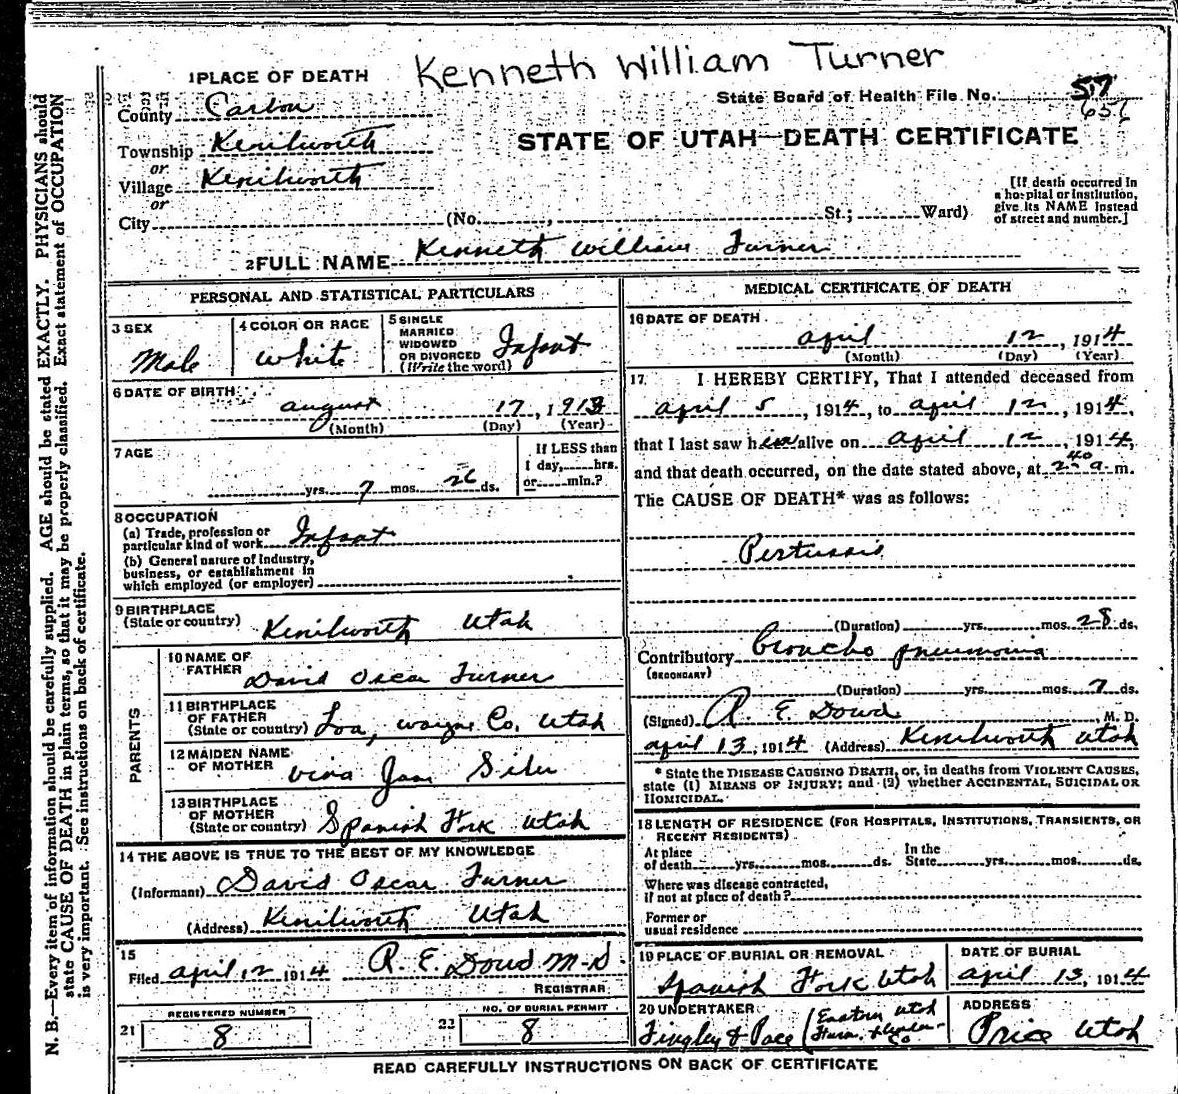 Kenneth William Turner
1 PLACE OF DEATH
State Board of Health File No. 57
656
County Carbon
STATE OF UTAH—DEATH CERTIFICATE
Township Kenilworth
or
Village Kenilworth
or
City (No. , St.; Ward)
[If death occurred in
a hospital or institution,
give its NAME instead
of street and number.]
2 FULL NAME Kenneth William Turner
PERSONAL AND STATISTICAL PARTICULARS
3 SEX
Male
4 COLOR OR RACE
White
5 SINGLE
MARRIED
WIDOWED
OR DIVORCED
(Write the word)
Infant
6 DATE OF BIRTH
august 17, 1913
(Month) (Day) (Year)
7 AGE
yrs. 7 mos. 26 ds.
If LESS than
1 day, hrs.
or min.?
8 OCCUPATION
(a) Trade, profession or
particular kind of work Infant
(b) General nature of Industry,
business, or establishment in
which employed (or employer)
9 BIRTHPLACE
(State or country) Kenilworth Utah
PARENTS
10 NAME OF
FATHER David Oscar Turner
11 BIRTHPLACE
OF FATHER
(State or country) Loa, Wayne Co, Utah
12 MAIDEN NAME
OF MOTHER
13 BIRTHPLACE
OF MOTHER
(State or country) Spanish Fork Utah
14 THE ABOVE IS TRUE TO THE BEST OF MY KNOWLEDGE
(Informant) David Oscar Turner
(Address) Kenilworth Utah
15
Filed april 12, 1914 R. E. Dowd M.D.
REGISTRAR
REGISTERED NUMBER
21 8
NO. OF BURIAL PERMIT
22 8
MEDICAL CERTIFICATE OF DEATH
16 DATE OF DEATH
april 12, 1914
(Month) (Day) (Year)
17 I HEREBY CERTIFY, That I attended deceased from
april 5, 1914, to april 12, 1914,
that I last saw him alive on april 12, 1914,
and that death occurred, on the date stated above, at 2 40 a m.
The CAUSE OF DEATH* was as follows:
Pertussis
(Duration) yrs. mos. 28 ds.
Contributory Broncho pneumonia
(SECONDARY)
(Duration) yrs. mos. 7 ds.
(Signed) R. E Dowd, M. D.
april 13, 1914 (Address) Kenilworth Utah
* State the DISEASE CAUSING DEATH, or, in deaths from VIOLENT CAUSES,
state (1) MEANS OF INJURY; and (2) whether ACCIDENTAL, SUICIDAL OR
HOMICIDAL.
18 LENGTH OF RESIDENCE (FOR HOSPITALS, INSTITUTIONS, TRANSIENTS, OR
RECENT RESIDENTS)
At place
of death yrs. mos. ds.
In the
State yrs. mos. ds.
Where was disease contracted,
if not at place of death?
Former or
usual residence
19 PLACE OF BURIAL OR REMOVAL
Spanish Fork Utah
DATE OF BURIAL
april 13, 1914
20 UNDERTAKER
Eastern Utah
Co
ADDRESS
Price Utah
READ CAREFULLY INSTRUCTIONS ON BACK OF CERTIFICATE
N. B.—Every item of information should be carefully supplied. AGE should be stated EXACTLY. PHYSICIANS should
state CAUSE OF DEATH in plain terms, so that it may be properly classified. Exact statement of OCCUPATION
is very important. See instructions on back of certificate.